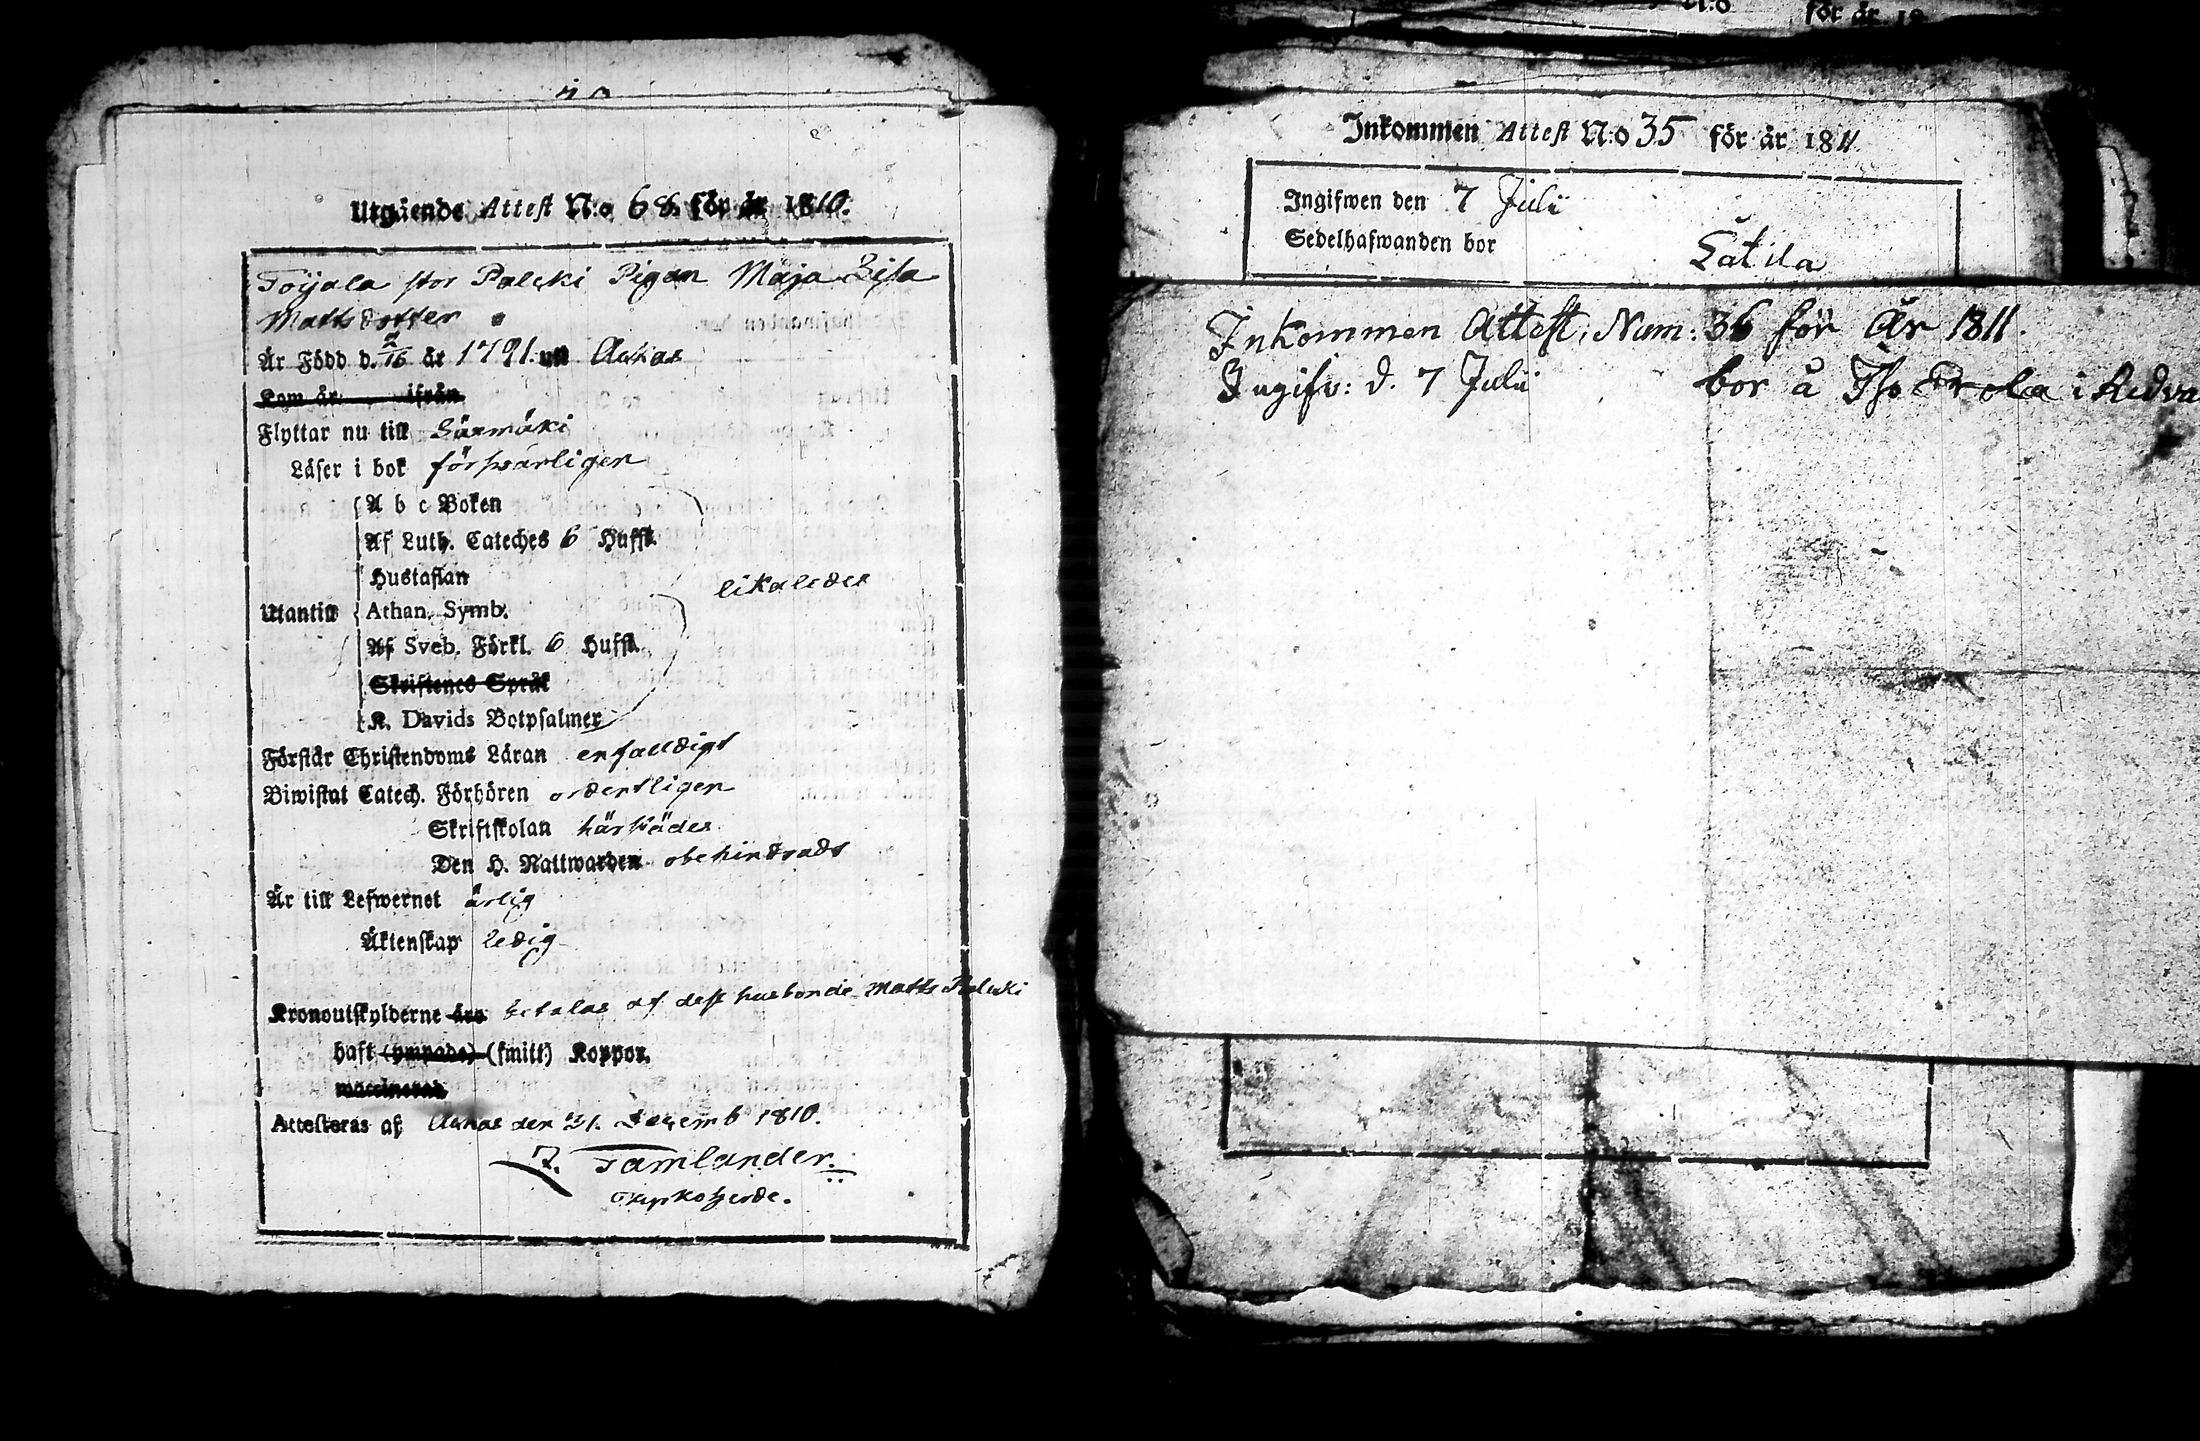 Utgående Attest N:o 68. för år 1810.
Toijala stor Palcki Pigan Maja Lisa
Mattsdotter
Är Född d. 2/16 år 1791. uti Ackas
Kom år ifrån
Flyttar nu till Särmäki
Läser i bok försvarligen
A b c Boken
Af Luth. Cateches 6 Hufst.
Hustaflan
likaledes
Utantill Athan. Symb.
Af Sveb. Förkl. 6 Hufst.
Skriftenes Språk
K. Davids Botpsalmer
Förstår Christendoms Läran enfalldigt
Biwistat Catech. Förhören ordentligen
Skriftskolan härstädes
Den H. Nattwarden obehindradt
Är till Lefwernet ärlig
Äktenskap ledig
Kronoutskylderne äro betalas af dess husbonde Matts Palcki
haft (ympade) (smitt) Koppor.
vaccinerad
Attesteras af Ackas den 31. Decemb 1810.
J. Tamlander.
Kyrkoherde.
för år 18
Inkommen Attest N:o 35 för år 1811
Ingifwen den 7 Julii
Sedelhafwanden bor Låtila
Inkommen Attest, Num: 36 för År 1811.
Ingifv: d. 7 Julii bor å